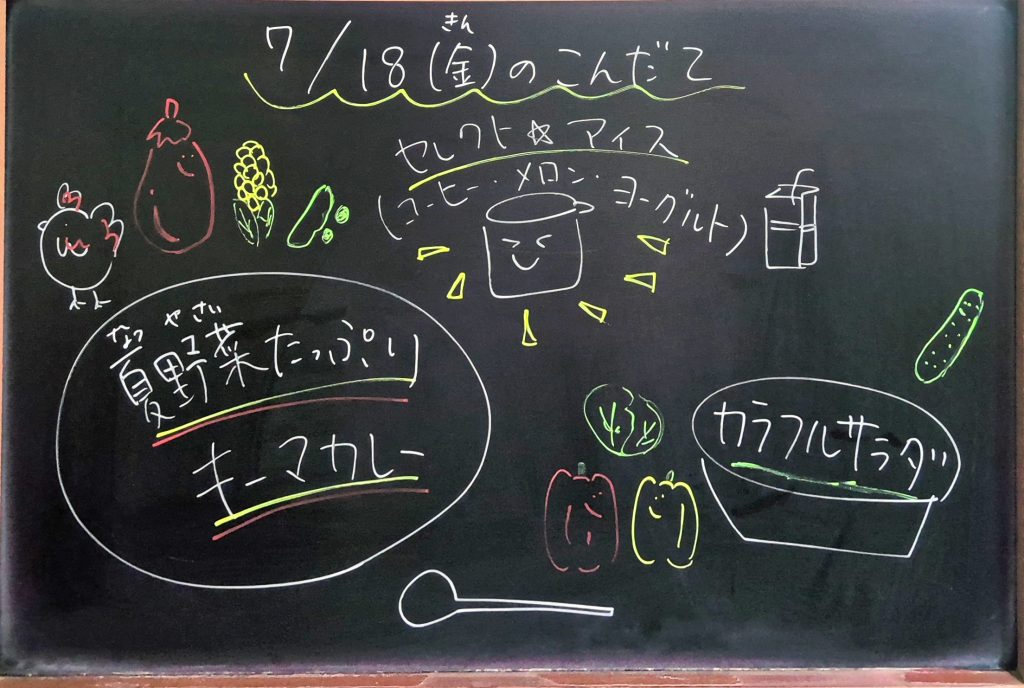 7/18(金)のこんだて
きん
セレクト☆アイス
(コーヒー・メロン・ヨーグルト)
なつ やさい
夏野菜たっぷり
キーマカレー
カラフルサラダ